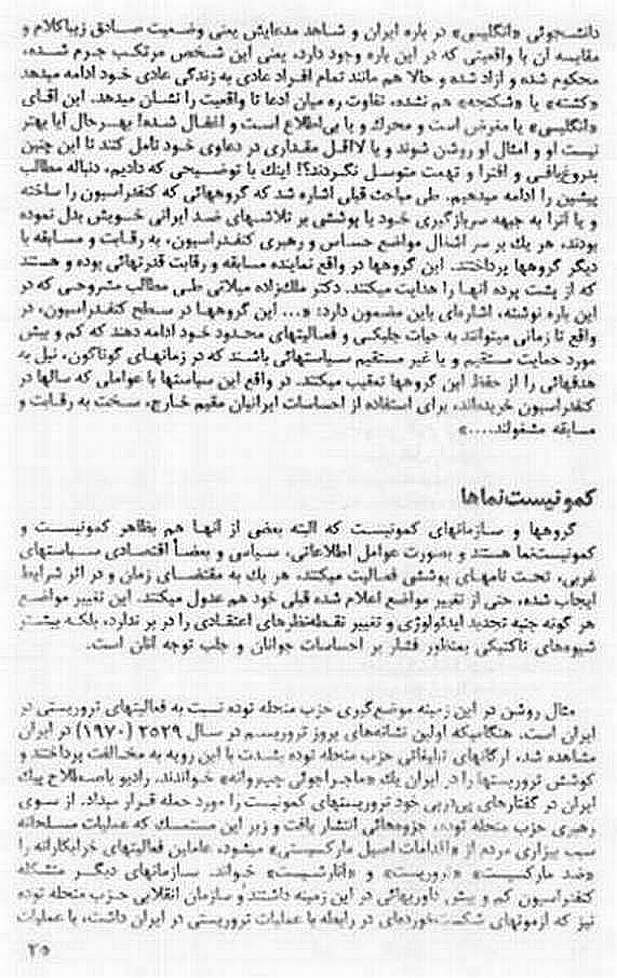 دانشجوئی «انگلیسی» در باره ایران و شاهد مدعایش یعنی وضعیت صادق زیباکلام و
مقایسه آن با واقعیتی که در این باره وجود دارد، یعنی این شخص مرتکب جرم شده،
محکوم شده و آزاد شده و حالا هم مانند تمام افراد عادی به زندگی عادی خود ادامه میدهد
«کشته» یا «شکنجه» هم نشده، تفاوت ره میان ادعا تا واقعیت را نشان میدهد. این آقای
«انگلیسی» یا مغرض است و محرک و یا بی‌اطلاع است و اغفال شده! بهرحال آیا بهتر
نیست او و امثال او روشن شوند و یا لااقل مقداری در دعاوی خود تامل کنند تا این چنین
بدروغ‌بافی و افترا و تهمت متوسل نگردند؟! اینک با توضیحی که دادیم، دنباله مطالب
پیشین را ادامه میدهیم. طی مباحث قبلی اشاره شد که گروههائی که کنفدراسیون را ساخته
و یا آنرا به جبهه سربازگیری خود یا پوششی بر تلاشهای ضد ایرانی خویش بدل نموده
بودند، هر یک بر سر اشغال مواضع حساس و رهبری کنفدراسیون، به رقابت و مسابقه با
دیگر گروهها پرداختند. این گروهها در واقع نماینده مسابقه و رقابت قدرتهائی بوده و هستند
که از پشت پرده آنها را هدایت میکنند. دکتر ملک‌زاده میلانی طی مطالب مشروحی که در
این باره نوشته، اشاره‌ای باین مضمون دارد: «... این گروهها در سطح کنفدراسیون، در
واقع تا زمانی میتوانند به حیات جلبکی و فعالیتهای محدود خود ادامه دهند که کم و بیش
مورد حمایت مستقیم و یا غیر مستقیم سیاستهائی باشند که در زمانهای گوناگون، نیل به
هدفهائی را از حفظ این گروهها تعقیب میکنند. در واقع این سیاستها با عواملی که سالها در
کنفدراسیون خریده‌اند، برای استفاده از احساسات ایرانیان مقیم خارج، سخت به رقابت و
مسابقه مشغولند....»
کمونیست‌نماها
گروهها و سازمانهای کمونیست که البته بعضی از آنها هم بظاهر کمونیست و
کمونیست‌نما هستند و بصورت عوامل اطلاعاتی، سیاسی و بعضاً اقتصادی سیاستهای
غربی، تحت نامهای پوششی فعالیت میکنند، هر یک به مقتضای زمان و در اثر شرایط
ایجاب شده، حتی از تغییر مواضع اعلام شده قبلی خود هم عدول میکنند. این تغییر مواضع
هر گونه جنبه تجدید ایدئولوژی و تغییر نقطه‌نظرهای اعتقادی را در بر ندارد، بلکه بیشتر
شیوه‌های تاکتیکی بمنظور فشار بر احساسات جوانان و جلب توجه آنان است.
مثال روشن در این زمینه موضع‌گیری حزب منحله توده نسبت به فعالیتهای تروریستی در
ایران است. هنگامیکه اولین نشانه‌های بروز تروریسم در سال ۲۵۲۹ (۱۹۷۰) در ایران
مشاهده شد، ارگانهای تبلیغاتی حزب منحله توده بشدت با این رویه به مخالفت پرداختند و
کوشش تروریستها را در ایران یک «ماجراجوئی چپ‌روانه» خواندند. رادیو باصطلاح پیک
ایران در گفتارهای پی‌درپی خود تروریستهای کمونیست را مورد حمله قرار میداد. از سوی
رهبری حزب منحله توده، جزوه‌هائی انتشار یافت و زیر این مستمسک که عملیات مسلحانه
سبب بیزاری مردم از «اقدامات اصیل مارکسیستی» میشود، عاملین فعالیتهای خرابکارانه را
«ضد مارکسیست» «تروریست» و «آنارشیست» خواند. سازمانهای دیگر متشکله
کنفدراسیون کم و بیش داوریهائی در این زمینه داشتند و سازمان انقلابی حزب منحله توده
نیز که آزمونهای شکست‌خورده‌ای در رابطه با عملیات تروریستی در ایران داشت، با عملیات
۲۵